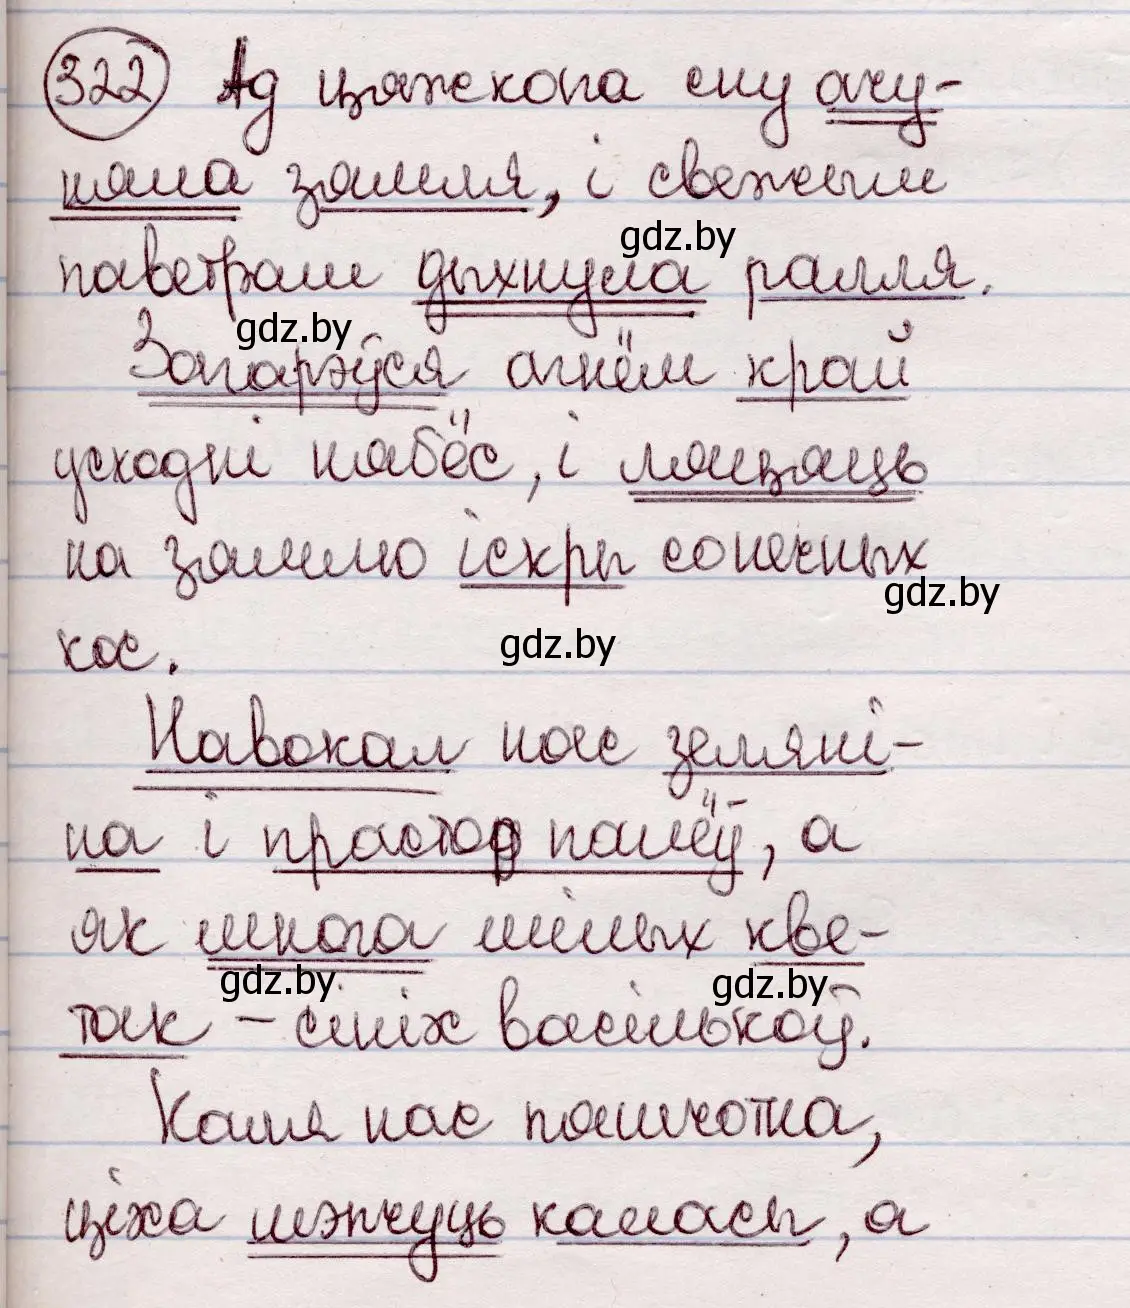 322 Ад цяжкога сну ачу-
няла зямля, і свежым
gdz.by
паветрам дыхнула ралля.
gdz.by
Загарэўся агнём край
усходні нябёс, і ляцяць
на зямлю іскры сонечных
gdz.by
кос.
gdz.by
Навокал нас земляні-
на і прастор палёў, а
як многа мілых кве-
gdz.by
gdz.by
так – сініх васількоў.
Каля нас пяшчотна,
ціха шэпчуць каласы, а